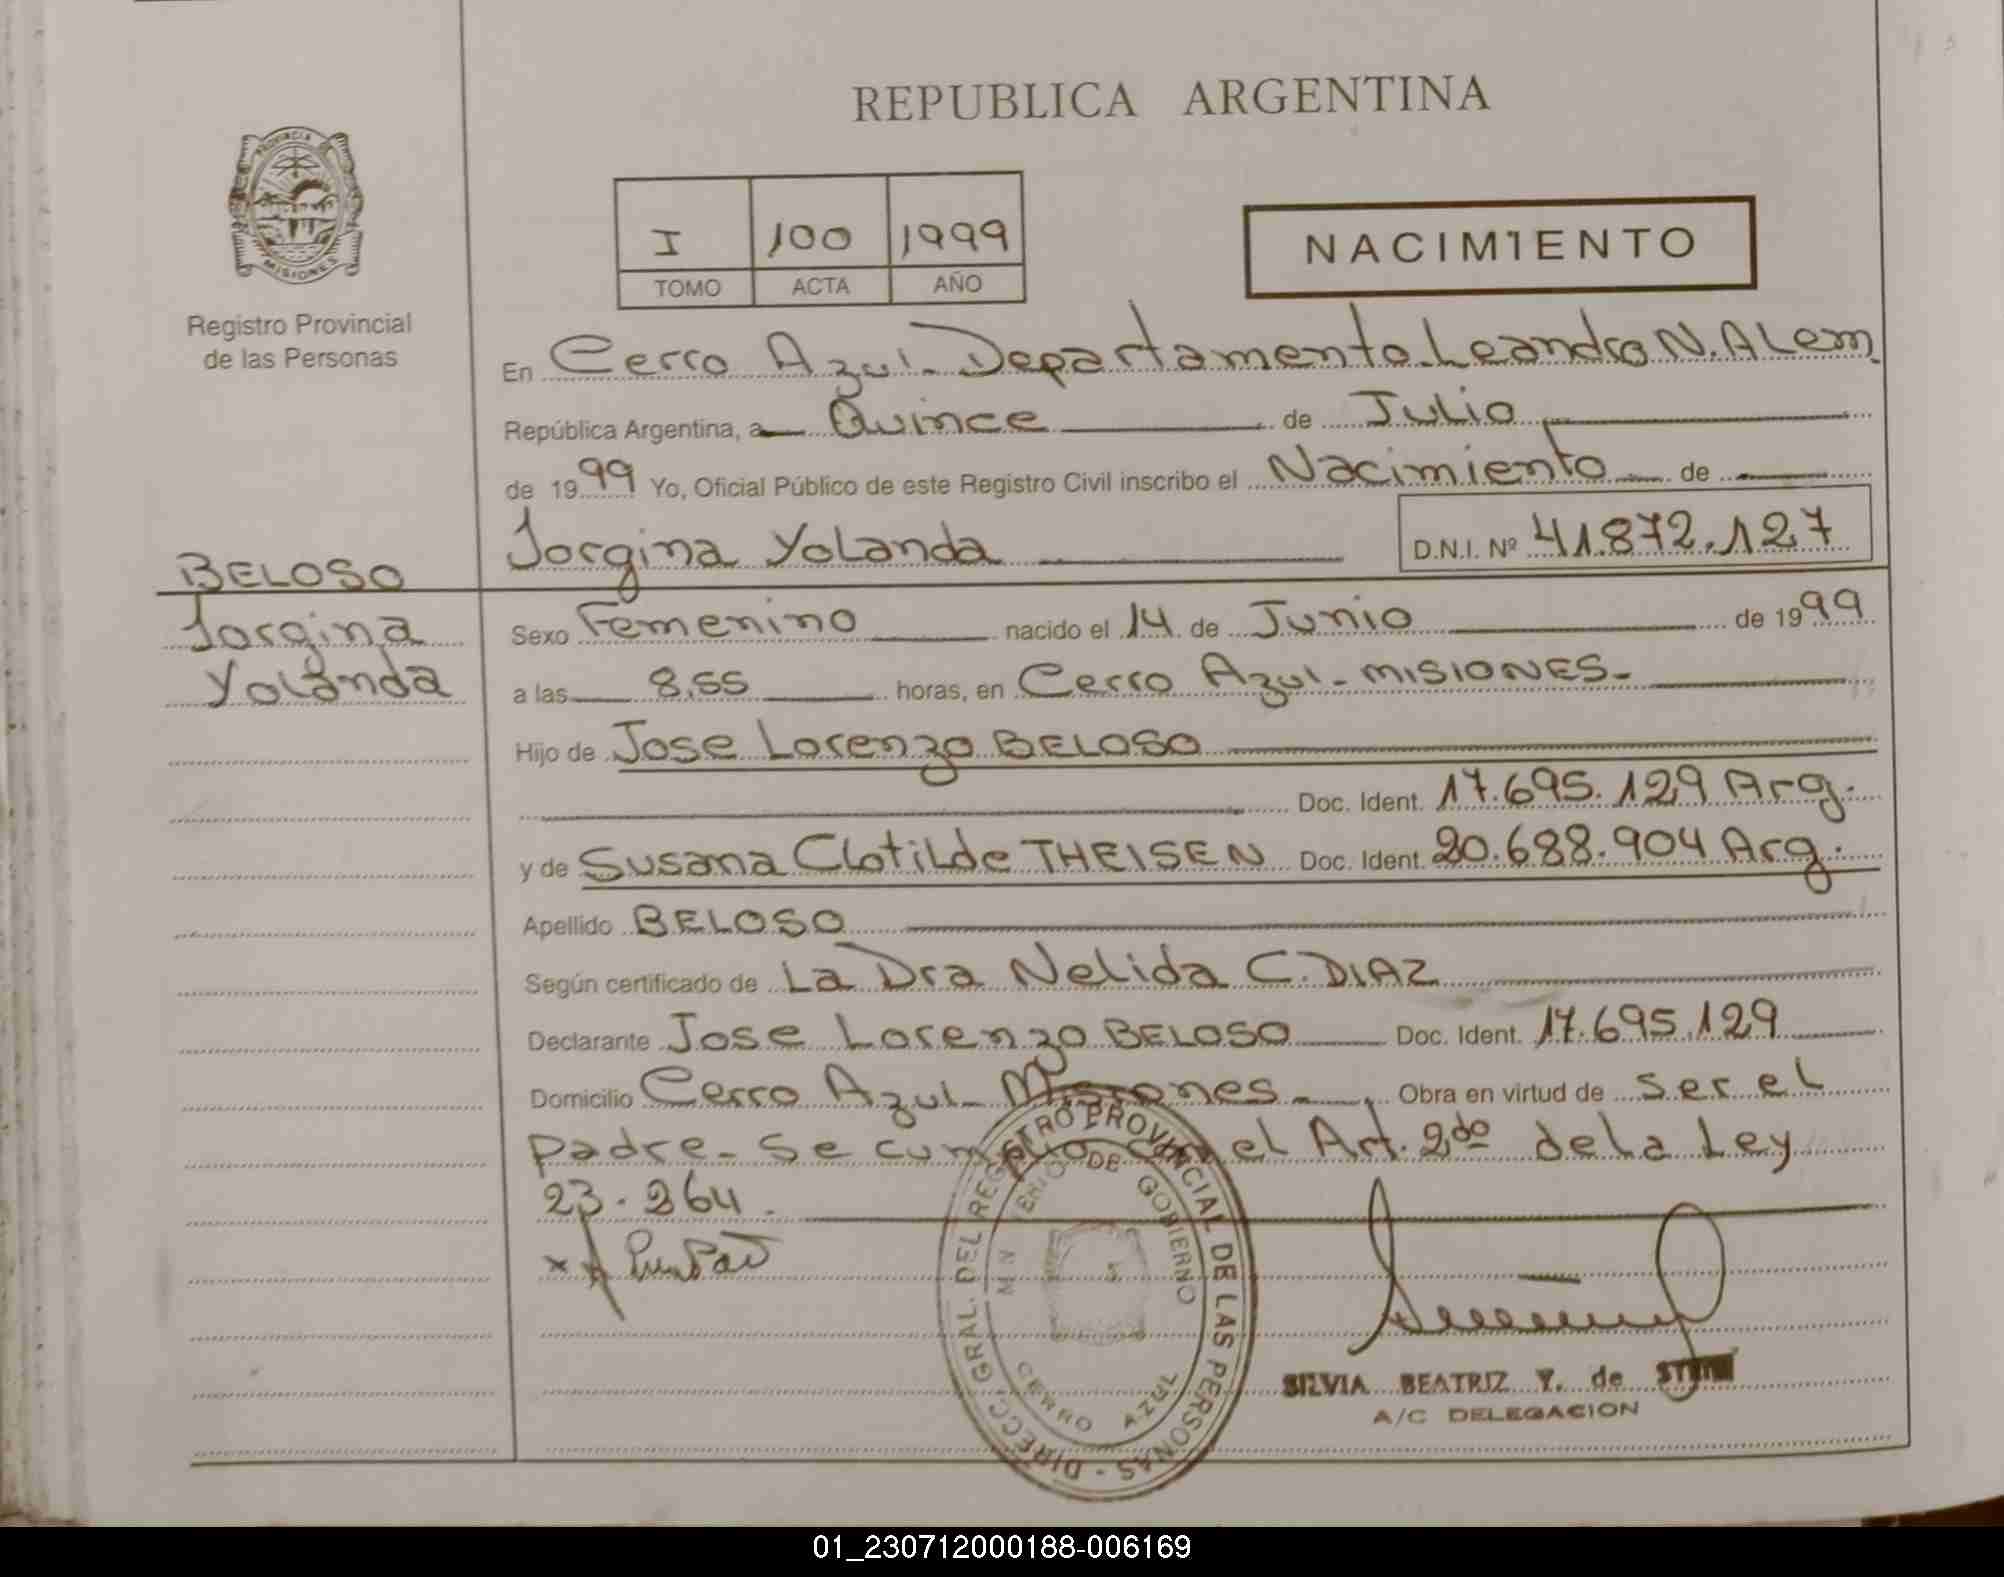 REPUBLICA ARGENTINA
PROVINCIA
MISIONES
Registro Provincial
de las Personas
I 100 1999
TOMO ACTA AÑO
NACIMIENTO
En Cerro Azul - Departamento Leandro N. ALem.
República Argentina, a Quince de Julio
de 1999 Yo, Oficial Público de este Registro Civil inscribo el Nacimiento de
Jorgina Yolanda D.N.I. Nº 41.872.127
BELOSO
Jorgina
Yolanda
Sexo Femenino nacido el 14 de Junio de 1999
a las 8,55 horas, en Cerro Azul - MISIONES -
Hijo de Jose Lorenzo BELOSO
Doc. Ident. 17.695.129 Arg.
y de Susana CLotiLde THEISEN Doc. Ident. 20.688.904 Arg.
Apellido BELOSO
Según certificado de La Dra Nelida C. DIAZ
Declarante Jose Lorenzo BELOSO Doc. Ident. 17.695.129
Domicilio Cerro Azul - Misiones - Obra en virtud de ser el
padre - Se cumplio con el Art. 2do de la Ley
23.264.
DIRECC. GRAL. DEL REGISTRO PROVINCIAL DE LAS PERSONAS -
MINISTERIO DE GOBIERNO
CERRO AZUL
SILVIA BEATRIZ Y. de
A/C DELEGACION
01_230712000188-006169